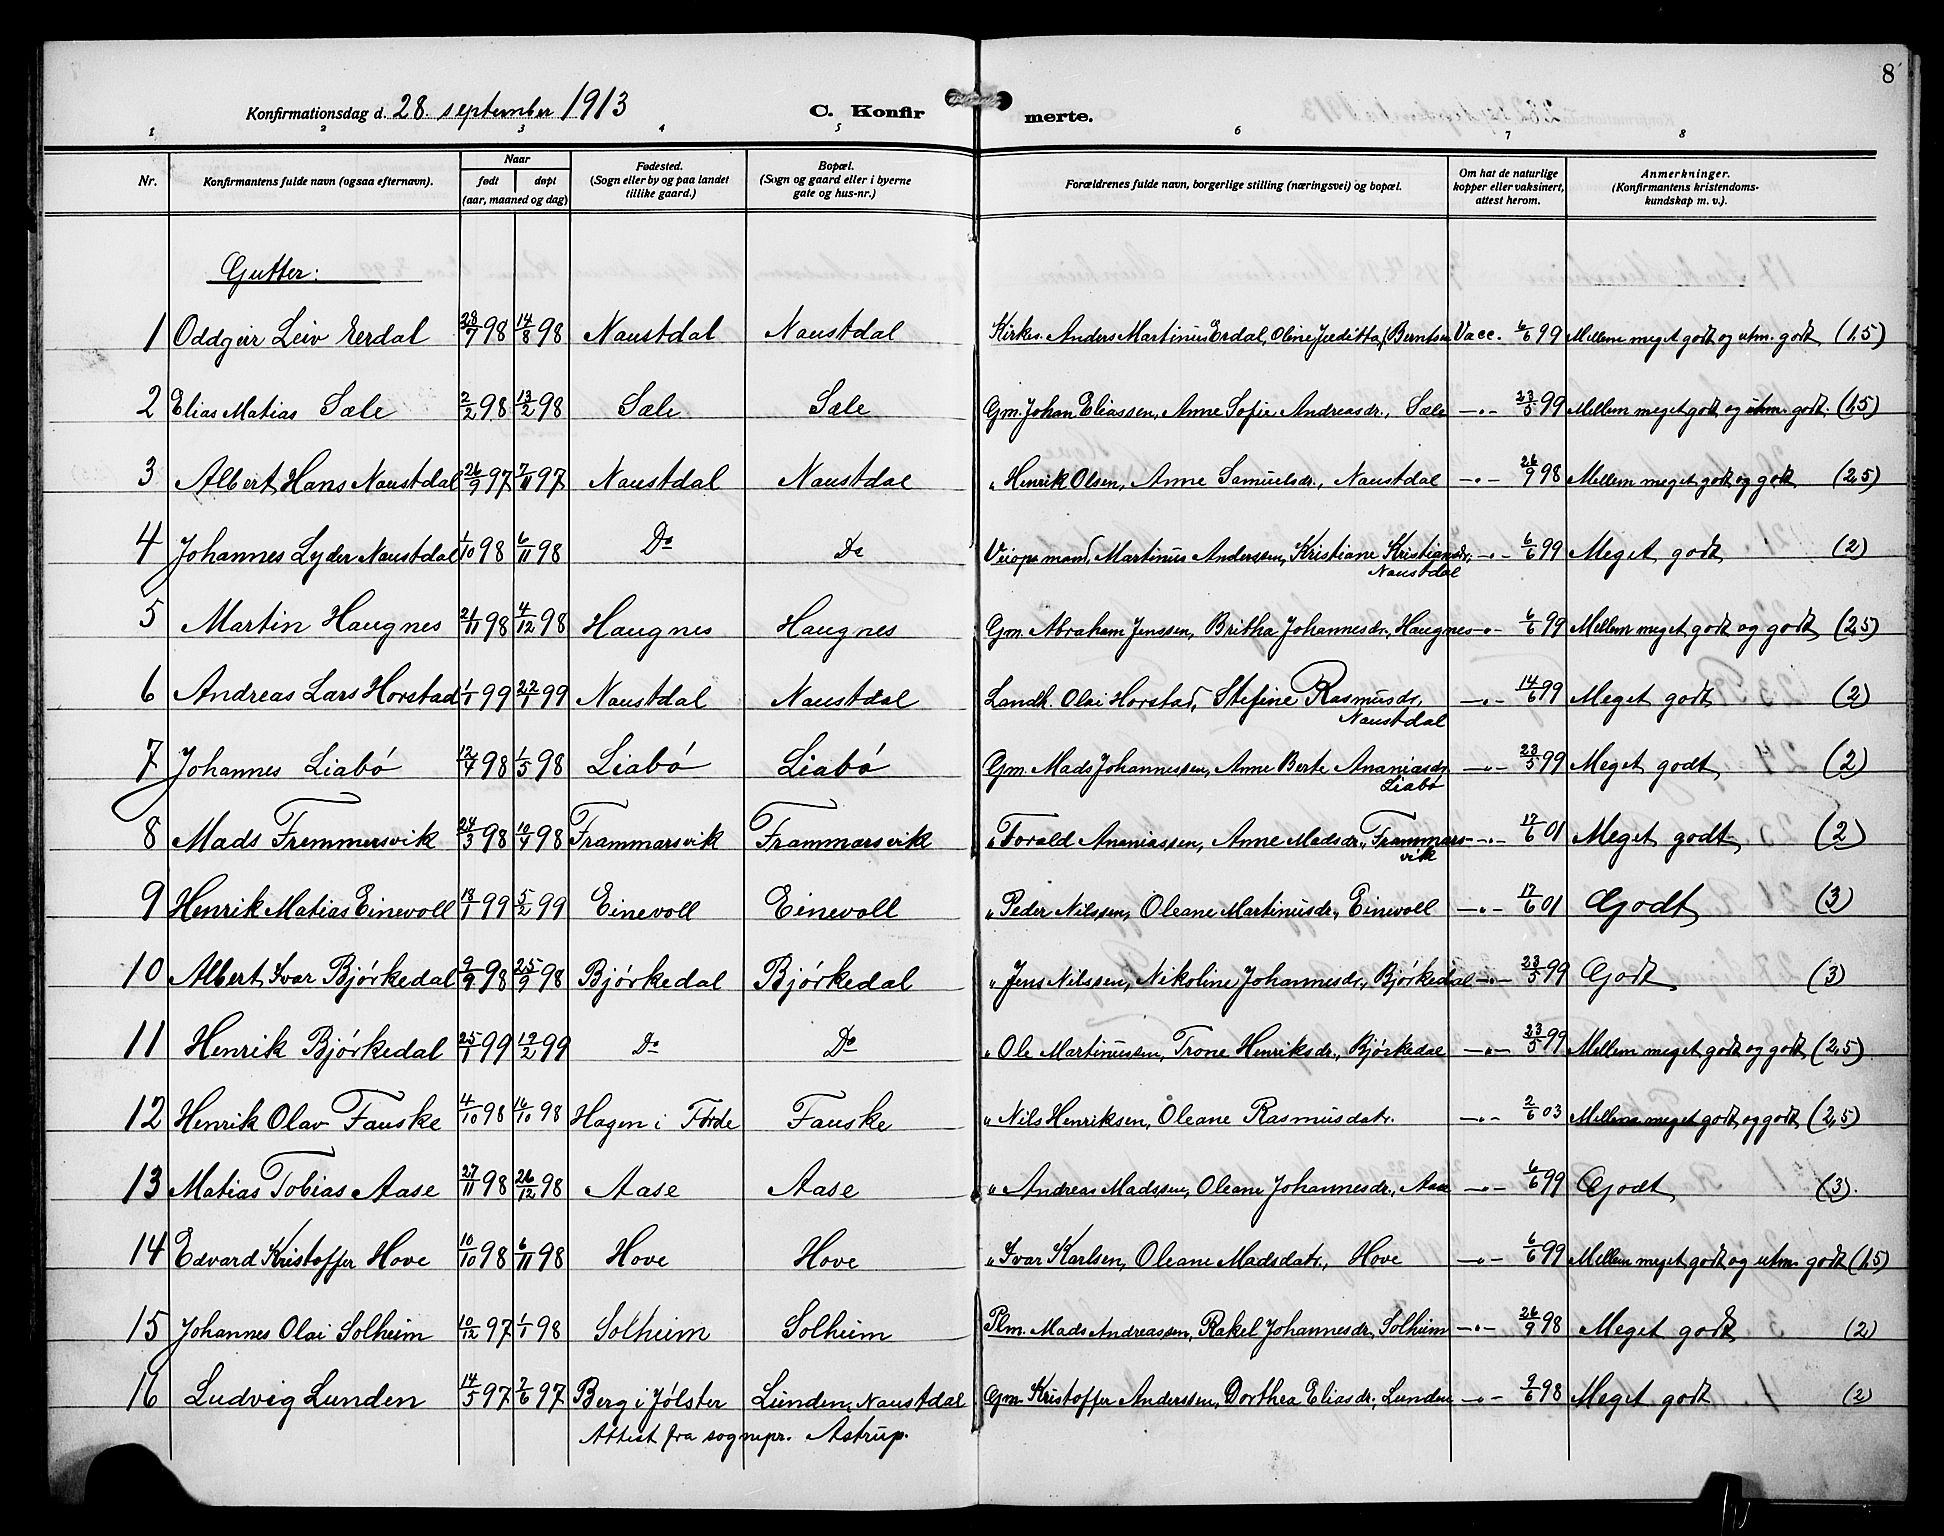 8
Konfirmationsdag d. 28. september 1913 C. Konfir merte.
1 2 3 4 5 6 7 8
Nr. Konfirmantens fulde navn (ogsaa efternavn). Naar født døpt (aar, maaned og dag) Fødested. (Sogn eller by og paa landet tillike gaard.) Bopæl. (Sogn og gaard eller i byerne gate og hus-nr.) Forældrenes fulde navn, borgerlige stilling (næringsvei) og bopæl. Om hat de naturlige kopper eller vaksinert, attest herom. Anmerkninger. (Konfirmantens kristendoms-kundskap m. v.).
Gutter:
1 Oddgeir Leiv Erdal 28/7 98 14/8 98 Naustdal Naustdal Kirkes. Anders Martinus Erdal, Oline Jeditta Berntsen Vacc. 6/6 99 Mellem meget godt og utm. godt (1,5)
2 Elias Matias Sæle 2/2 98 13/2 98 Sæle Sæle Gm. Johan Eliassen, Anne Sofie Andreasdr., Sæle —"— 23/5 99 Mellem meget godt og utm. godt. (1,5)
3 Albert Hans Naustdal 26/9 97 7/11 97 Naustdal Naustdal " Henrik Olsen, Anne Samuelsdr., Naustdal —"— 26/9 98 Mellem meget godt og godt (2,5)
4 Johannes Lyder Naustdal 1/10 98 6/11 98 Do Do Martinus Anderssen, Kristiane Kristiansdr., —"— 6/6 99 Meget godt (2)
Naustdal
5 Martin Haugnes 21/11 98 4/12 98 Haugnes Haugnes Gm. Abraham Jenssen, Britha Johannesdr., Haugnes —"— 6/6 99 Mellem meget godt og godt (2,5)
6 Andreas Lars Horstad 1/1 99 22/1 99 Naustdal Naustdal Landh. Olai Horstad, Stefine Rasmusdr., —"— 14/6 99 Meget godt (2)
Naustdal
7 Johannes Liabø 12/4 98 1/5 98 Liabø Liabø Gm. Mads Johannessen, Anne Berte Ananiasdr. —"— 23/5 99 Meget godt (2)
Liabø
8 Mads Fremmersvik 24/3 98 10/4 98 Frammarsvik Frammarsvik " Torald Ananiassen, Anne Madsdr., Frammars- —"— 17/6 01 Meget godt (2)
vik
9 Henrik Matias Einevoll 18/1 99 5/2 99 Einevoll Einevoll " Peder Nilssen, Oleane Martinusdr., Einevoll —"— 17/6 01 Godt (3)
10 Albert Ivar Bjørkedal 9/9 98 25/9 98 Bjørkedal Bjørkedal " Jens Nilssen, Nikoline Johannesdr., Bjørkedal —"— 23/5 99 Godt (3)
11 Henrik Bjørkedal 25/1 99 12/2 99 Do Do " Ole Martinussen, Trone Henriksdr., Bjørkedal —"— 23/5 99 Mellem meget godt og godt (2,5)
12 Henrik Olav Fauske 4/10 98 16/10 98 Hagen i Førde Fauske " Nils Henriksen, Oleane Rasmusdatr. —"— 2/6 03 Mellem meget godt og godt (2,5)
13 Matias Tobias Aase 27/11 98 26/12 98 Aase Aase " Andreas Madssen, Oleane Johannesdr., Aase —"— 6/6 99 Godt (3).
14 Edvard Kristoffer Hove 10/10 98 6/11 98 Hove Hove " Ivar Karlsen, Oleane Madsdatr., Hove —"— 6/6 99 Mellem meget godt og utm. godt (1,5)
15 Johannes Olai Solheim 10/12 97 1/1 98 Solheim Solheim Plm. Mads Andreassen, Rakel Johannesdr., Solheim —"— 26/9 98 Meget godt (2)
16 Ludvig Lunden 14/5 97 7/6 97 Berg i Jølster Lunden, Naustdal Gm. Kristoffer Anderssen, Dorthea Eliasdr., Lunden —"— 9/6 98 Meget godt (2)
Attest fra sognepr. Astrup.